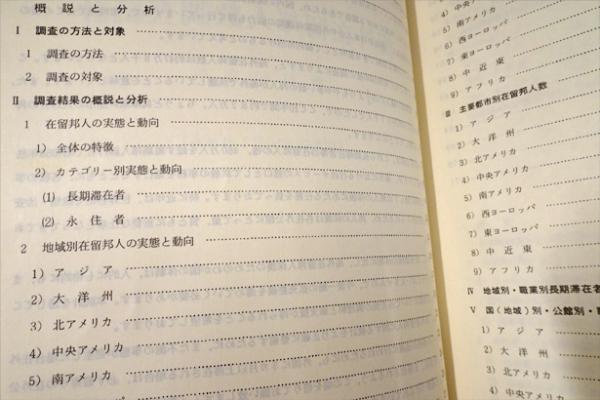 概説と分析
Ⅰ 調査の方法と対象
1 調査の方法
2 調査の対象
Ⅱ 調査結果の概説と分析
1 在留邦人の実態と動向
1) 全体の特徴
2) カテゴリー別実態と動向
(1) 長期滞在者
(2) 永住者
2 地域別在留邦人の実態と動向
1) アジア
2) 大洋州
3) 北アメリカ
4) 中央アメリカ
5) 南アメリカ
4) 中央アメリカ
5) 南アメリカ
6) 西ヨーロッパ
7) 東ヨーロッパ
8) 中近東
9) アフリカ
Ⅲ 主要都市別在留邦人数
1) アジア
2) 大洋州
3) 北アメリカ
4) 中央アメリカ
5) 南アメリカ
6) 西ヨーロッパ
7) 東ヨーロッパ
8) 中近東
9) アフリカ
Ⅳ 地域別・職業別長期滞在者
Ⅴ 国(地域)別・公館別・
1) アジア
2) 大洋州
3) 北アメリカ
4) 中央アメリカ